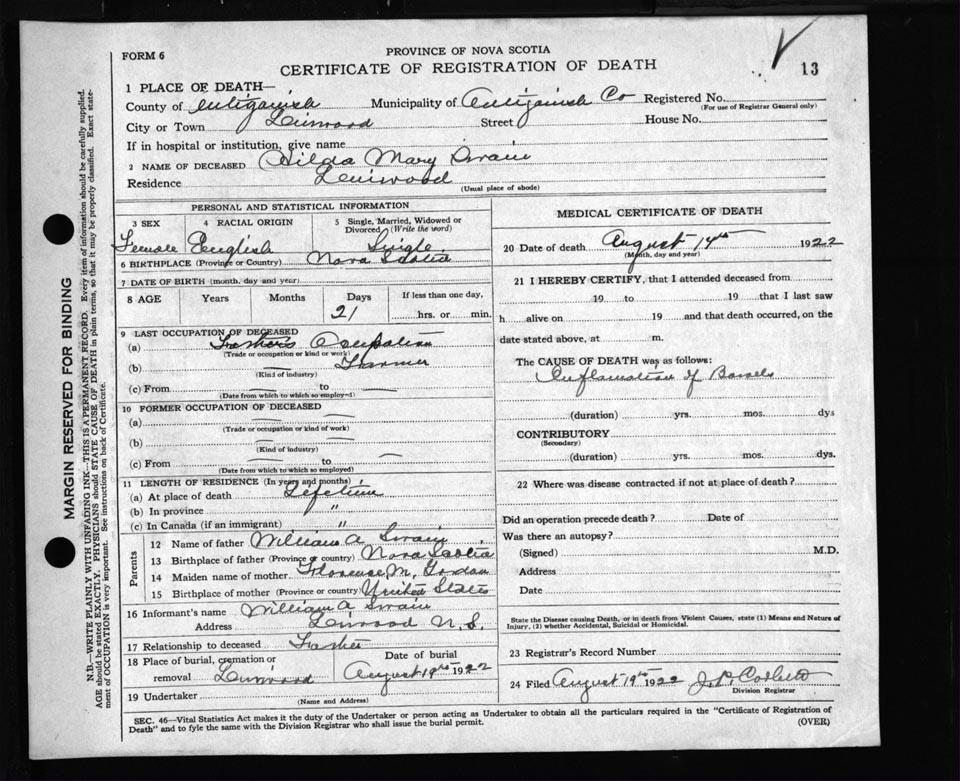 FORM 6
PROVINCE OF NOVA SCOTIA
CERTIFICATE OF REGISTRATION OF DEATH
13
1 PLACE OF DEATH—
County of Antigonish Municipality of Antigonish Co Registered No.
(For use of Registrar General only)
City or Town Linwood Street House No.
If in hospital or institution, give name
2 NAME OF DECEASED Hilda Mary Swain
Residence Linwood
(Usual place of abode)
PERSONAL AND STATISTICAL INFORMATION
3 SEX 4 RACIAL ORIGIN 5 Single, Married, Widowed or Divorced (Write the word)
Female English Single
6 BIRTHPLACE (Province or Country) Nova Scotia
7 DATE OF BIRTH (month, day and year)
8 AGE Years Months Days If less than one day,
21 hrs. or min.
9 LAST OCCUPATION OF DECEASED
(a) Fathers Occupation
(Trade or occupation or kind or work)
(b) Farmer
(Kind of industry)
(c) From to
(Date from which to which so employed)
10 FORMER OCCUPATION OF DECEASED
(a)
(Trade or occupation or kind of work)
(b)
(Kind of industry)
(c) From to
(Date from which to which so employed)
11 LENGTH OF RESIDENCE (In years and months)
(a) At place of death Lifetime
(b) In province "
(c) In Canada (if an immigrant) "
Parents
12 Name of father William A Swain
13 Birthplace of father (Province or country) Nova Scotia
14 Maiden name of mother Florence M.
15 Birthplace of mother (Province or country) United States
16 Informant's name William A Swain
Address Linwood N.S.
17 Relationship to deceased Father
18 Place of burial, cremation or removal Linwood Date of burial August 19th 1922
19 Undertaker
(Name and Address)
MEDICAL CERTIFICATE OF DEATH
20 Date of death August 14th 1922
(Month, day and year)
21 I HEREBY CERTIFY, that I attended deceased from
19 to 19 that I last saw
h alive on 19 and that death occurred, on the
date stated above, at m.
The CAUSE OF DEATH was as follows:
Inflamation of Bowels
(duration) yrs. mos. dys
CONTRIBUTORY
(Secondary)
(duration) yrs. mos. dys.
22 Where was disease contracted if not at place of death?
Did an operation precede death? Date of
Was there an autopsy?
(Signed) M.D.
Address
Date
State the Disease causing Death, or in death from Violent Causes, state (1) Means and Nature of
Injury, (2) whether Accidental, Suicidal or Homicidal.
23 Registrar's Record Number
24 Filed August 19th 1922
Division Registrar
SEC. 46—Vital Statistics Act makes it the duty of the Undertaker or person acting as Undertaker to obtain all the particulars required in the "Certificate of Registration of
Death" and to fyle the same with the Division Registrar who shall issue the burial permit.
(OVER)
MARGIN RESERVED FOR BINDING
N.B.—WRITE PLAINLY WITH UNFADING INK—THIS IS A PERMANENT RECORD. Every item of information should be carefully supplied.
AGE should be stated EXACTLY. PHYSICIANS should STATE CAUSE OF DEATH in plain terms, so that it may be properly classified. Exact state-
ment of OCCUPATION is very important. See instructions on back of Certificate.